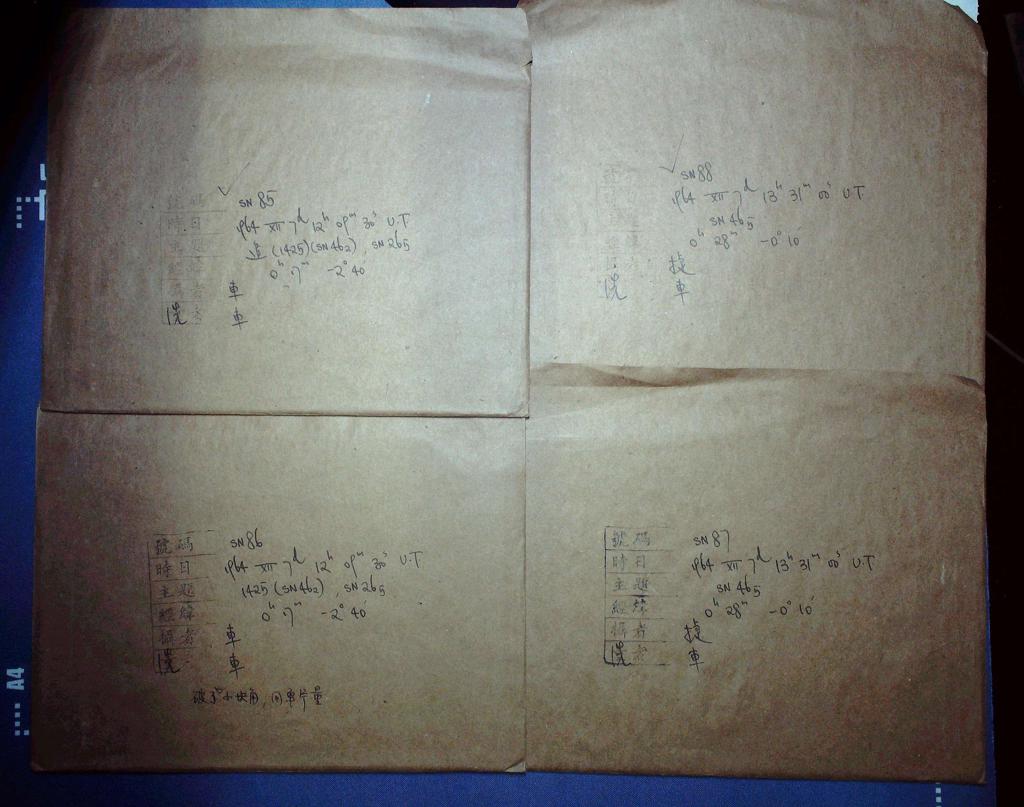 SN85
時日 1964 XII 7d 12h 09m 30s U.T
主題 追 (1425)(SN462), SN265
0h 7m -2° 40'
者 車
洗者 車
SN88
1964 XII 7d 13h 31m 00s U.T
SN465
0h 28m -0° 10'
捷
洗 車
號碼 SN86
時日 1964 XII 7d 12h 09m 30s U.T
主題 1425 (SN462), SN265
經緯 0h 7m -2° 40'
攝者 車
洗 車
破了小块角,
號碼 SN87
時日 1964 XII 7d 13h 31m 00s U.T
主題 SN465
經緯 0h 28m -0° 10'
攝者 捷
洗者 車
A4